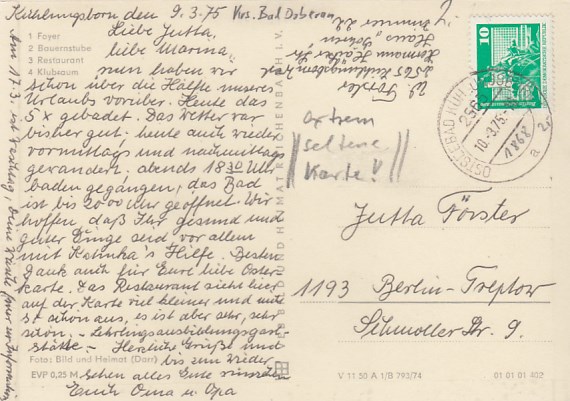 Kühlungsborn den 9.3.75 Krs. Bad Doberan
1 Foyer
2 Bauernstube
3 Restaurant
4 Klubraum
Liebe Jutta,
liebe Marina,
nun haben wir
schon über die Hälfte unseres
Urlaubs vorüber. Heute das
5 x gebadet. Das Wetter war
bisher gut, heute auch wieder
vormittags und nachmittags
gewandert, abends 18 30 Uhr
baden gegangen, das Bad
ist bis 20 00 Uhr geöffnet. Wir
hoffen, daß Ihr gesund und
guter Dinge seid, vor allem
mit Katinka's Hilfe. Besten
Dank auch für Eure liebe Oster
karte. Das Restaurant sieht hier
auf der Karte viel kleiner und
so schön aus, es ist aber sehr, sehr
schön. - Lehrlingsausbildungsgast-
stätte - Herzliche Grüße und
Foto: Bild und Heimat (Darr)
bis zum Wieder
sehen alles Gute
EVP 0,25 M
Euch Oma u. Opa
Am 17.3. ist
zur Information
BILD UND HEIMAT REICHENBACH I. V.
W. Förster
2565 Kühlungsborn
Haus
Zimmer 22
10
OSTSEEBAD KÜHLUNGSBORN
2565
10.-3.75
a
1868
extrem
seltene
Karte!
Jutta Förster
1193 Berlin-Treptow
Schmollerstr. 9.
V 11 50 A 1/B 793/74
01 01 01 402